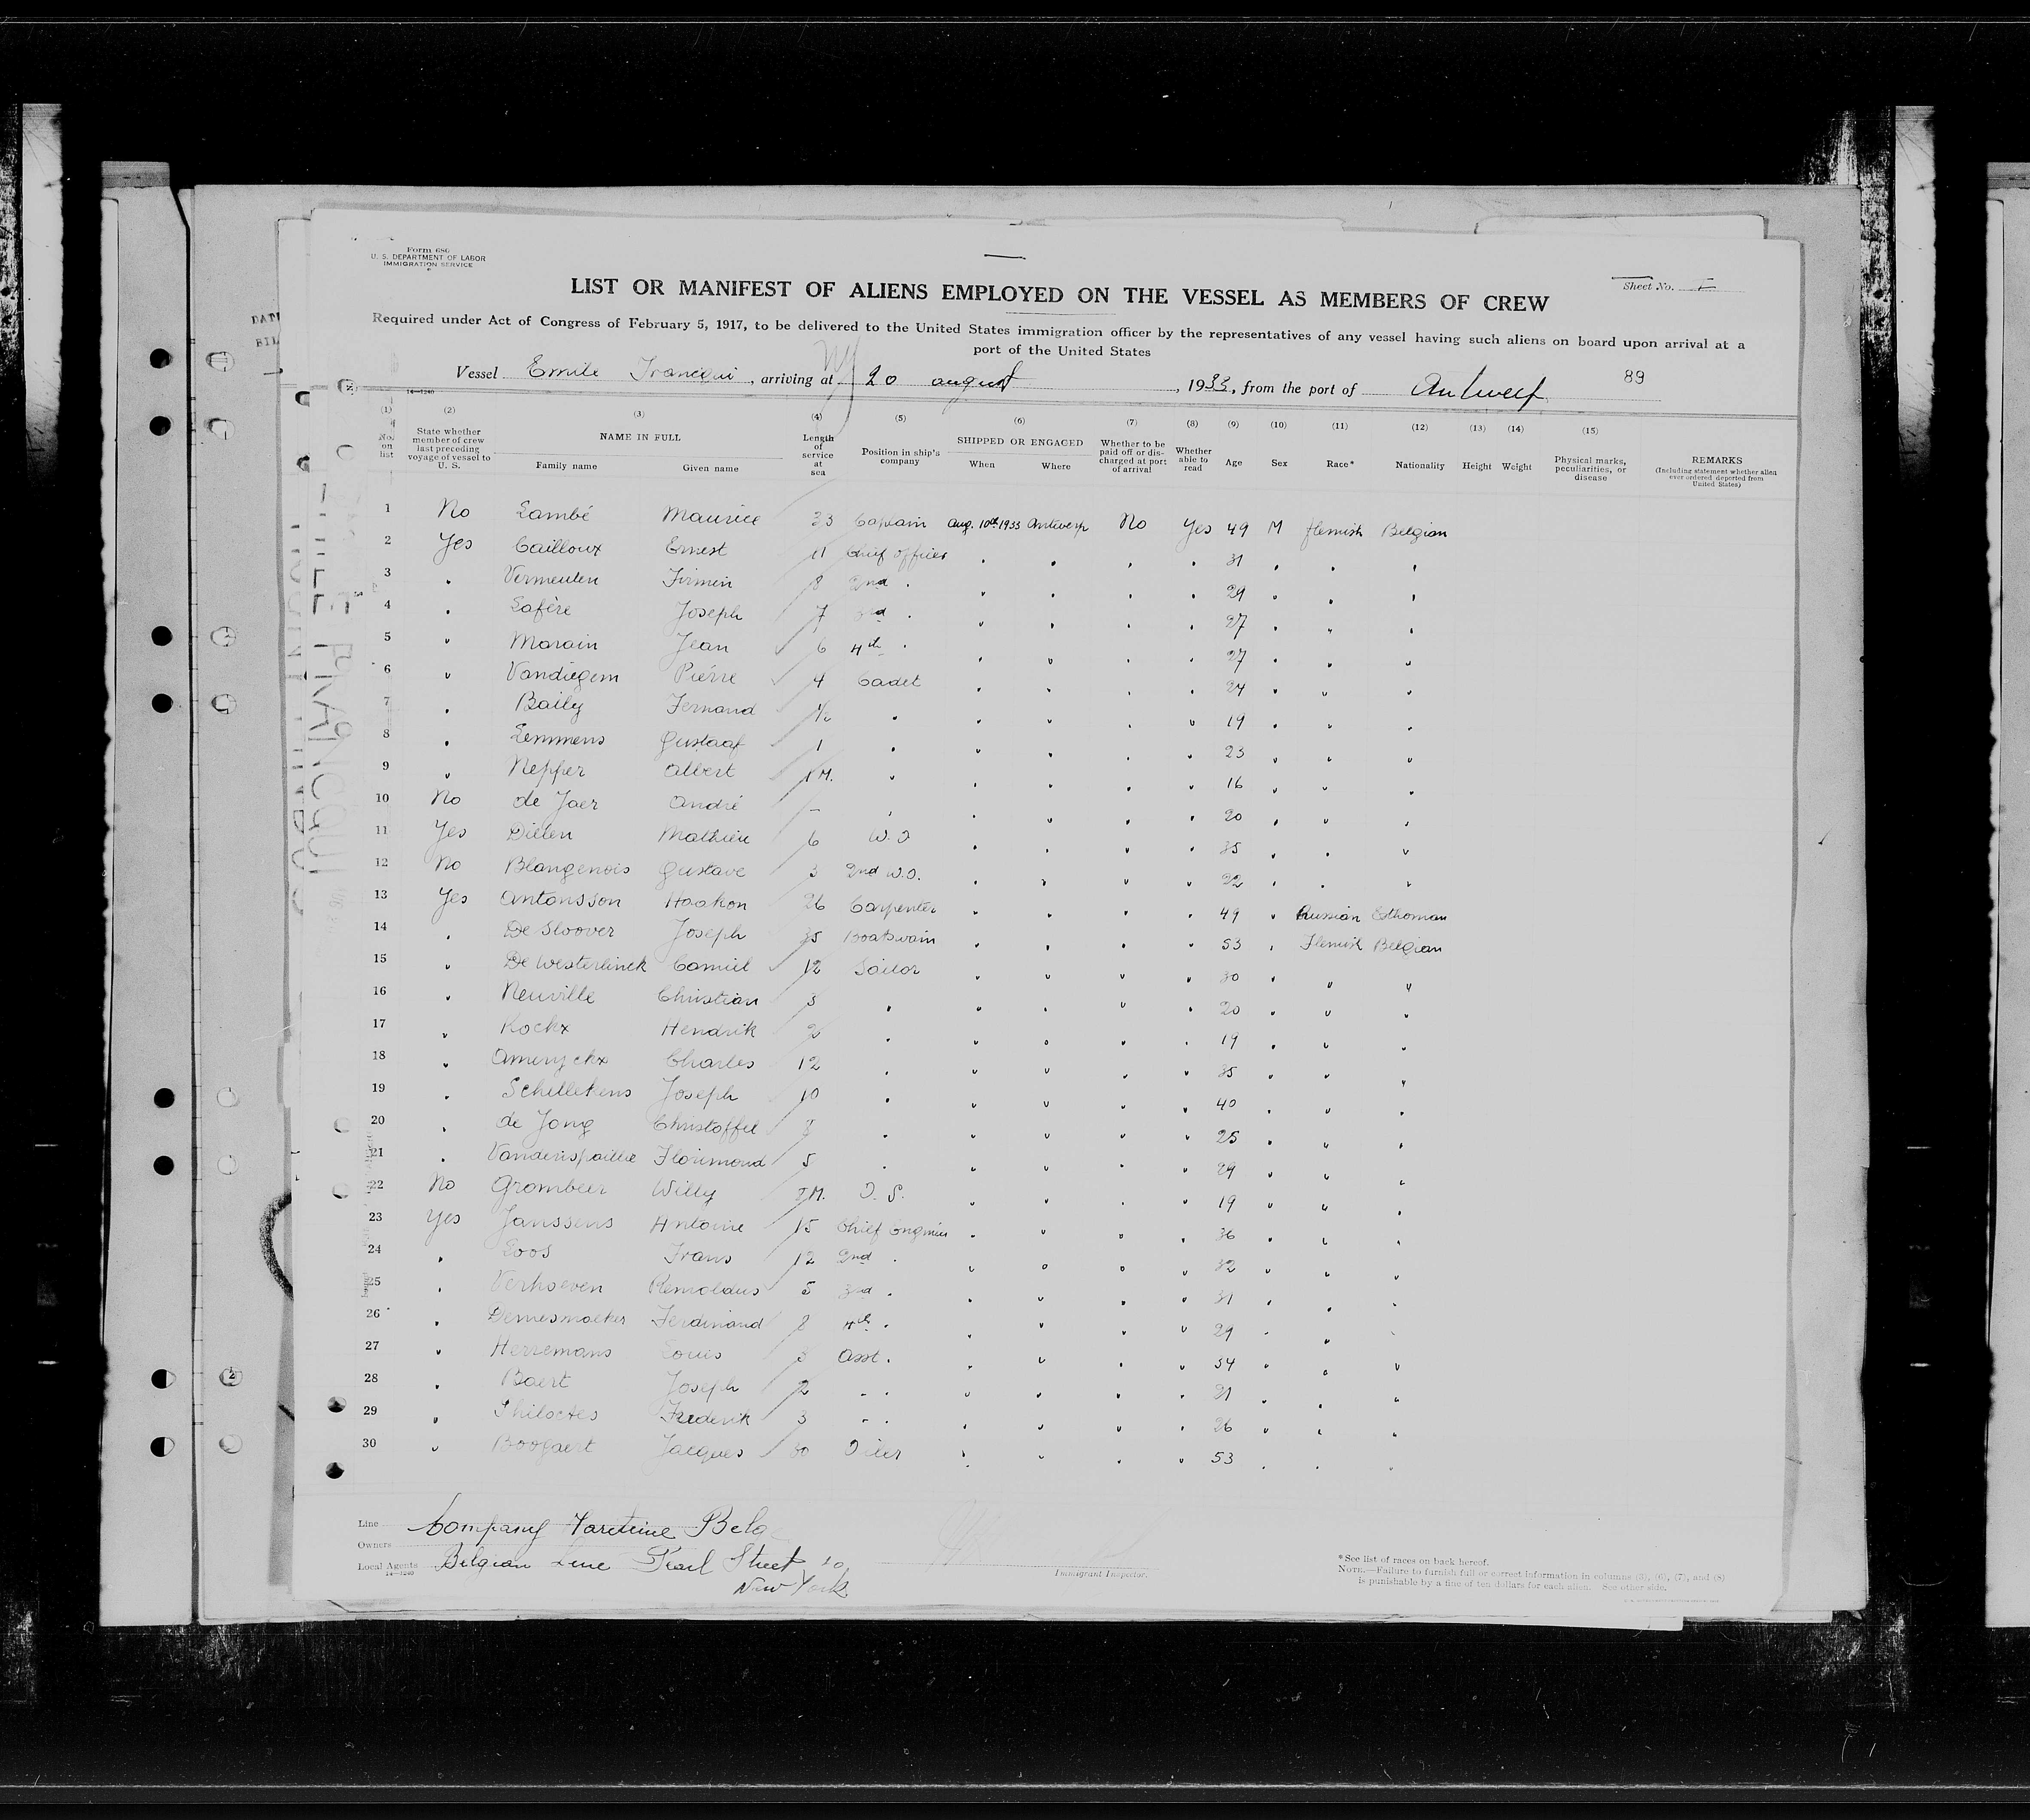 Form 680
U. S. DEPARTMENT OF LABOR
IMMIGRATION SERVICE
Sheet No. I
LIST OR MANIFEST OF ALIENS EMPLOYED ON THE VESSEL AS MEMBERS OF CREW
Required under Act of Congress of February 5, 1917, to be delivered to the United States immigration officer by the representatives of any vessel having such aliens on board upon arrival at a
port of the United States
Vessel Emile Francqui, arriving at NY 20 august, 1933, from the port of Antwerp 89
14—1240
(1) (2) (3) (4) (5) (6) (7) (8) (9) (10) (11) (12) (13) (14) (15)
No. on list State whether member of crew last preceding voyage of vessel to U. S. NAME IN FULL Family name Given name Length of service at sea Position in ship's company SHIPPED OR ENGAGED When Where Whether to be paid off or discharged at port of arrival Whether able to read Age Sex Race* Nationality Height Weight Physical marks, peculiarities, or disease REMARKS (Including statement whether alien ever ordered deported from United States)
1 No Lambé Maurice 33 Captain Aug. 10th 1933 Antwerp No Yes 49 M flemish Belgian
2 Yes Cailloux Ernest 11 Chief officer " " " " 31 " " "
3 " Vermeulen Firmin 8 2nd " " " " " 29 " " "
4 " Lafère Joseph 7 3rd " " " " " 27 " " "
5 " Morain Jean 6 4th " " " " " 27 " " "
6 " Vandiegem Pierre 4 Cadet " " " " 24 " " "
7 " Baily Fernand ½ " " " " " 19 " " "
8 " Lemmens Gustaaf 1 " " " " " 23 " " "
9 " Nepper Albert 1 M. " " " " " 16 " " "
10 No de Jaer André - " " " " " 20 " " "
11 Yes Dielen Mathieu 6 W.O " " " " 35 " " "
12 No Blangenois Gustave 3 2nd W.O. " " " " 22 " " "
13 Yes Antonsson Haakon 26 Carpenter " " " " 49 " Russian Esthonian
14 " De Sloover Joseph 35 Boatswain " " " " 53 " Flemish Belgian
15 " De Westerlinck Camiel 12 Sailor " " " " 30 " " "
16 " Neuville Christian 3 " " " " " 20 " " "
17 " Rockx Hendrik 2 " " " " " 19 " " "
18 " Ameryckx Charles 12 " " " " " 35 " " "
19 " Schellekens Joseph 10 " " " " " 40 " " "
20 " de Jong Christoffel " " " " " 25 " " "
21 " Vanderispaillie Florimond 5 " " " " " 29 " " "
22 No Grombeer Willy M. O. S. " " " " 19 " " "
23 Yes Janssens Antoine 15 Chief Engineer " " " " 36 " " "
24 " Loos Frans 12 2nd " " " " " 32 " " "
25 " Verhoeven Remoldus 5 3rd " " " " " 31 " " "
26 " Demesmaeker Ferdinand 4th " " " " " 29 " " "
27 " Herremans Louis 3 Asst. " " " " 34 " " "
28 " Baert Joseph 2 " " " " " " 21 " " "
29 " Philoctes Frederik 3 " " " " " " 26 " " "
30 " Boogaert Jacques 30 Oiler " " " " 53 " " "
Line Company Maritime Belg
Owners
Local Agents Belgian Line Pearl Street 10,
New York
14—1240
Immigrant Inspector.
*See list of races on back hereof.
NOTE.—Failure to furnish full or correct information in columns (3), (6), (7), and (8)
is punishable by a fine of ten dollars for each alien. See other side.